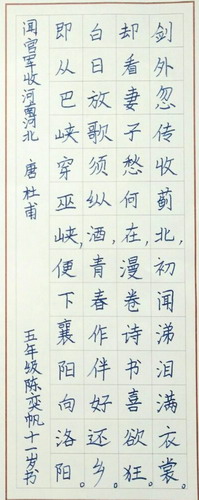 剑外忽传收蓟北,初闻涕泪满衣裳。
却看妻子愁何在,漫卷诗书喜欲狂。
白日放歌须纵酒,青春作伴好还乡。
即从巴峡穿巫峡,便下襄阳向洛阳。
闻官军收河南河北 唐 杜甫 五年级陈奕帆十一岁书